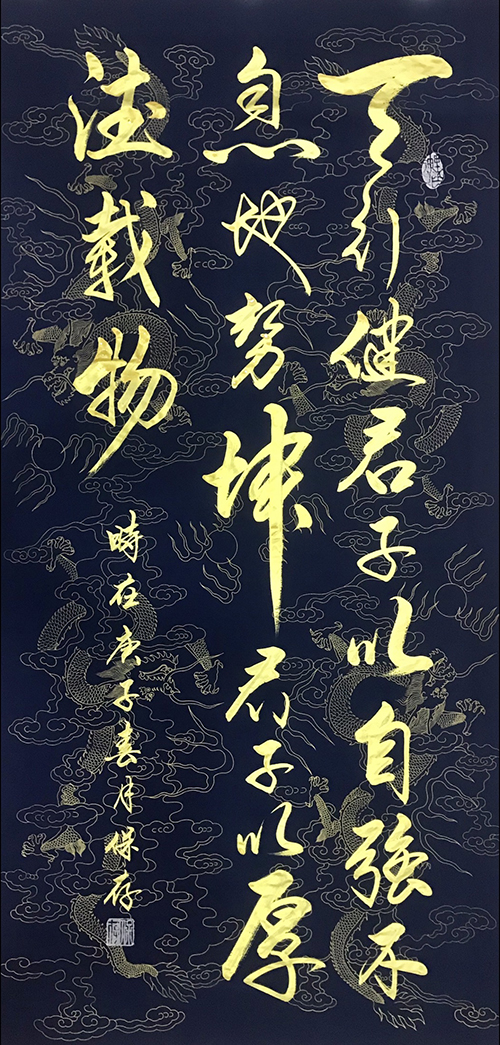 天行健君子以自強不
息地势坤君子以厚
德載物
時在庚子春月保存